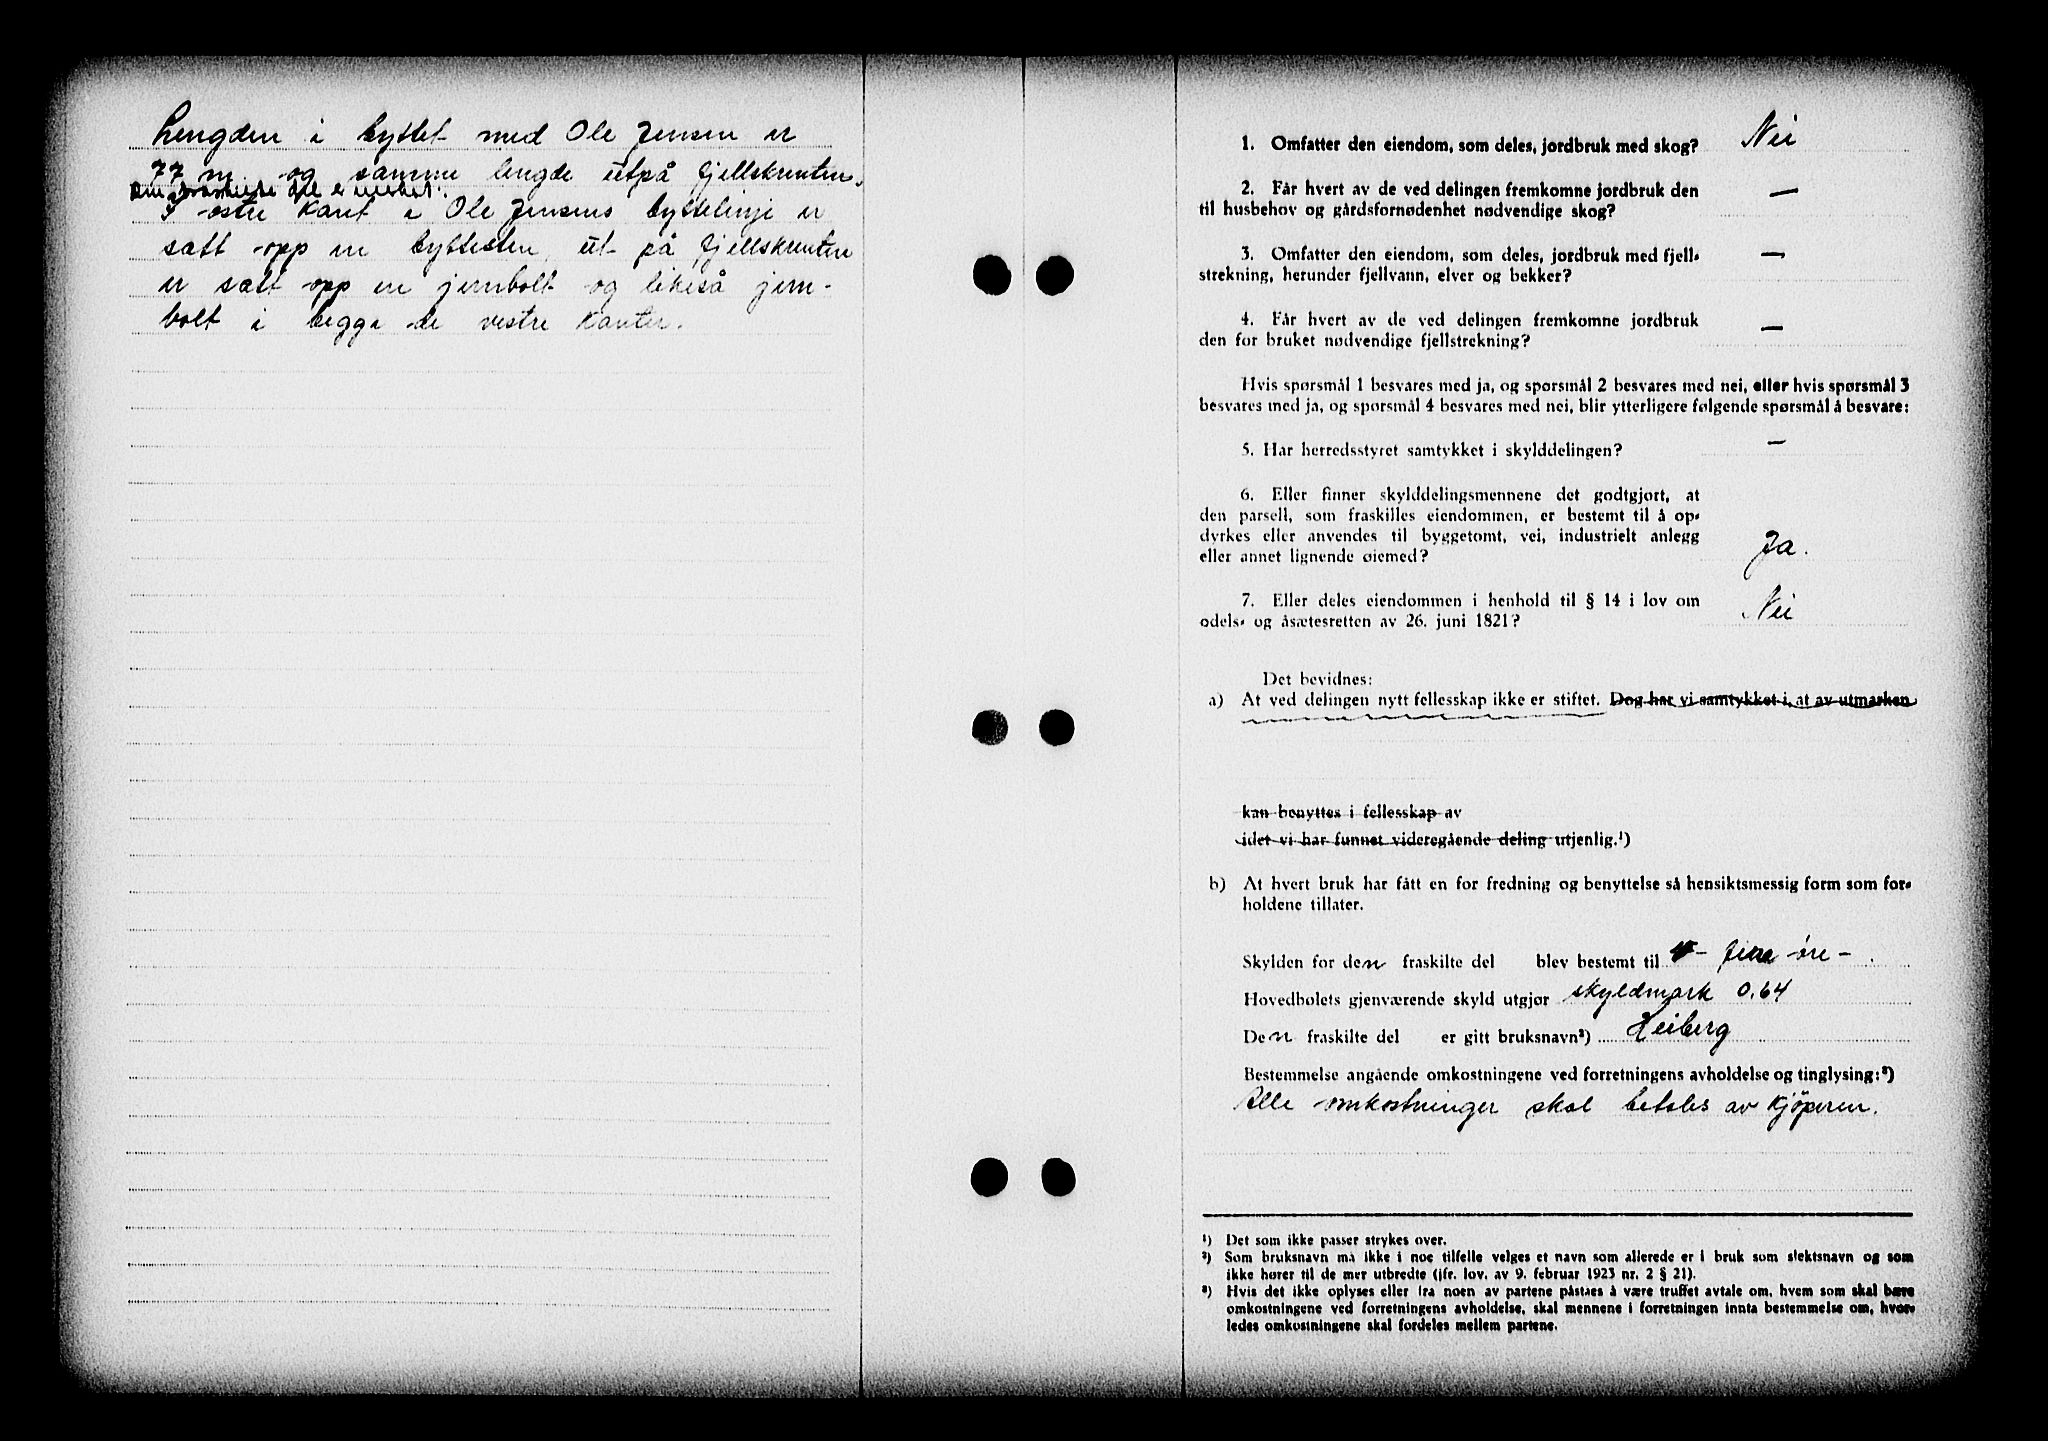 Lengden i byttet med Ole Jensen er
77 m. og samme lengde utpå fjellskrenten.
Den fraskilte del er merket:
I østre kant i Ole Jensens byttelinje er
satt opp en byttesten, ut på fjellskrenten
er satt opp en jernbolt og likeså jern-
bolt i begge de vestre kanter.
1. Omfatter den eiendom, som deles, jordbruk med skog? Nei
2. Får hvert av de ved delingen fremkomne jordbruk den
til husbehov og gårdsfornødenhet nødvendige skog? —
3. Omfatter den eiendom, som deles, jordbruk med fjell-
strekning, herunder fjellvann, elver og bekker? —
4. Får hvert av de ved delingen fremkomne jordbruk
den for bruket nødvendige fjellstrekning? —
Hvis spørsmål 1 besvares med ja, og spørsmål 2 besvares med nei, eller hvis spørsmål 3
besvares med ja, og spørsmål 4 besvares med nei, blir ytterligere følgende spørsmål å besvare:
5. Har herredsstyret samtykket i skylddelingen? —
6. Eller finner skylddelingsmennene det godtgjort, at
den parsell, som fraskilles eiendommen, er bestemt til å op-
dyrkes eller anvendes til byggetomt, vei, industrielt anlegg
eller annet lignende øiemed? Ja.
7. Eller deles eiendommen i henhold til § 14 i lov om
odels- og åsætesretten av 26. juni 1821? Nei
Det bevidnes:
a) At ved delingen nytt fellesskap ikke er stiftet. Dog har vi samtykket i, at av utmarken
kan benyttes i fellesskap av
idet vi har funnet videregående deling utjenlig.¹)
b) At hvert bruk har fått en for fredning og benyttelse så hensiktsmessig form som for-
holdene tillater.
Skylden for den fraskilte del blev bestemt til - fire øre - .
Hovedbølets gjenværende skyld utgjør skyldmark 0.64
Den fraskilte del er gitt bruksnavn²) Heiberg
Bestemmelse angående omkostningene ved forretningens avholdelse og tinglysing:³)
Alle omkostninger skal betales av kjöperen.
¹) Det som ikke passer strykes over.
²) Som bruksnavn må ikke i noe tilfelle velges et navn som allerede er i bruk som slektsnavn og som
ikke hører til de mer utbredte (jfr. lov. av 9. februar 1923 nr. 2 § 21).
³) Hvis det ikke oplyses eller fra noen av partene påståes å være truffet avtale om, hvem som skal bære
omkostningene ved forretningens avholdelse, skal mennene i forretningen innta bestemmelse om, hvor-
ledes omkostningene skal fordeles mellem partene.